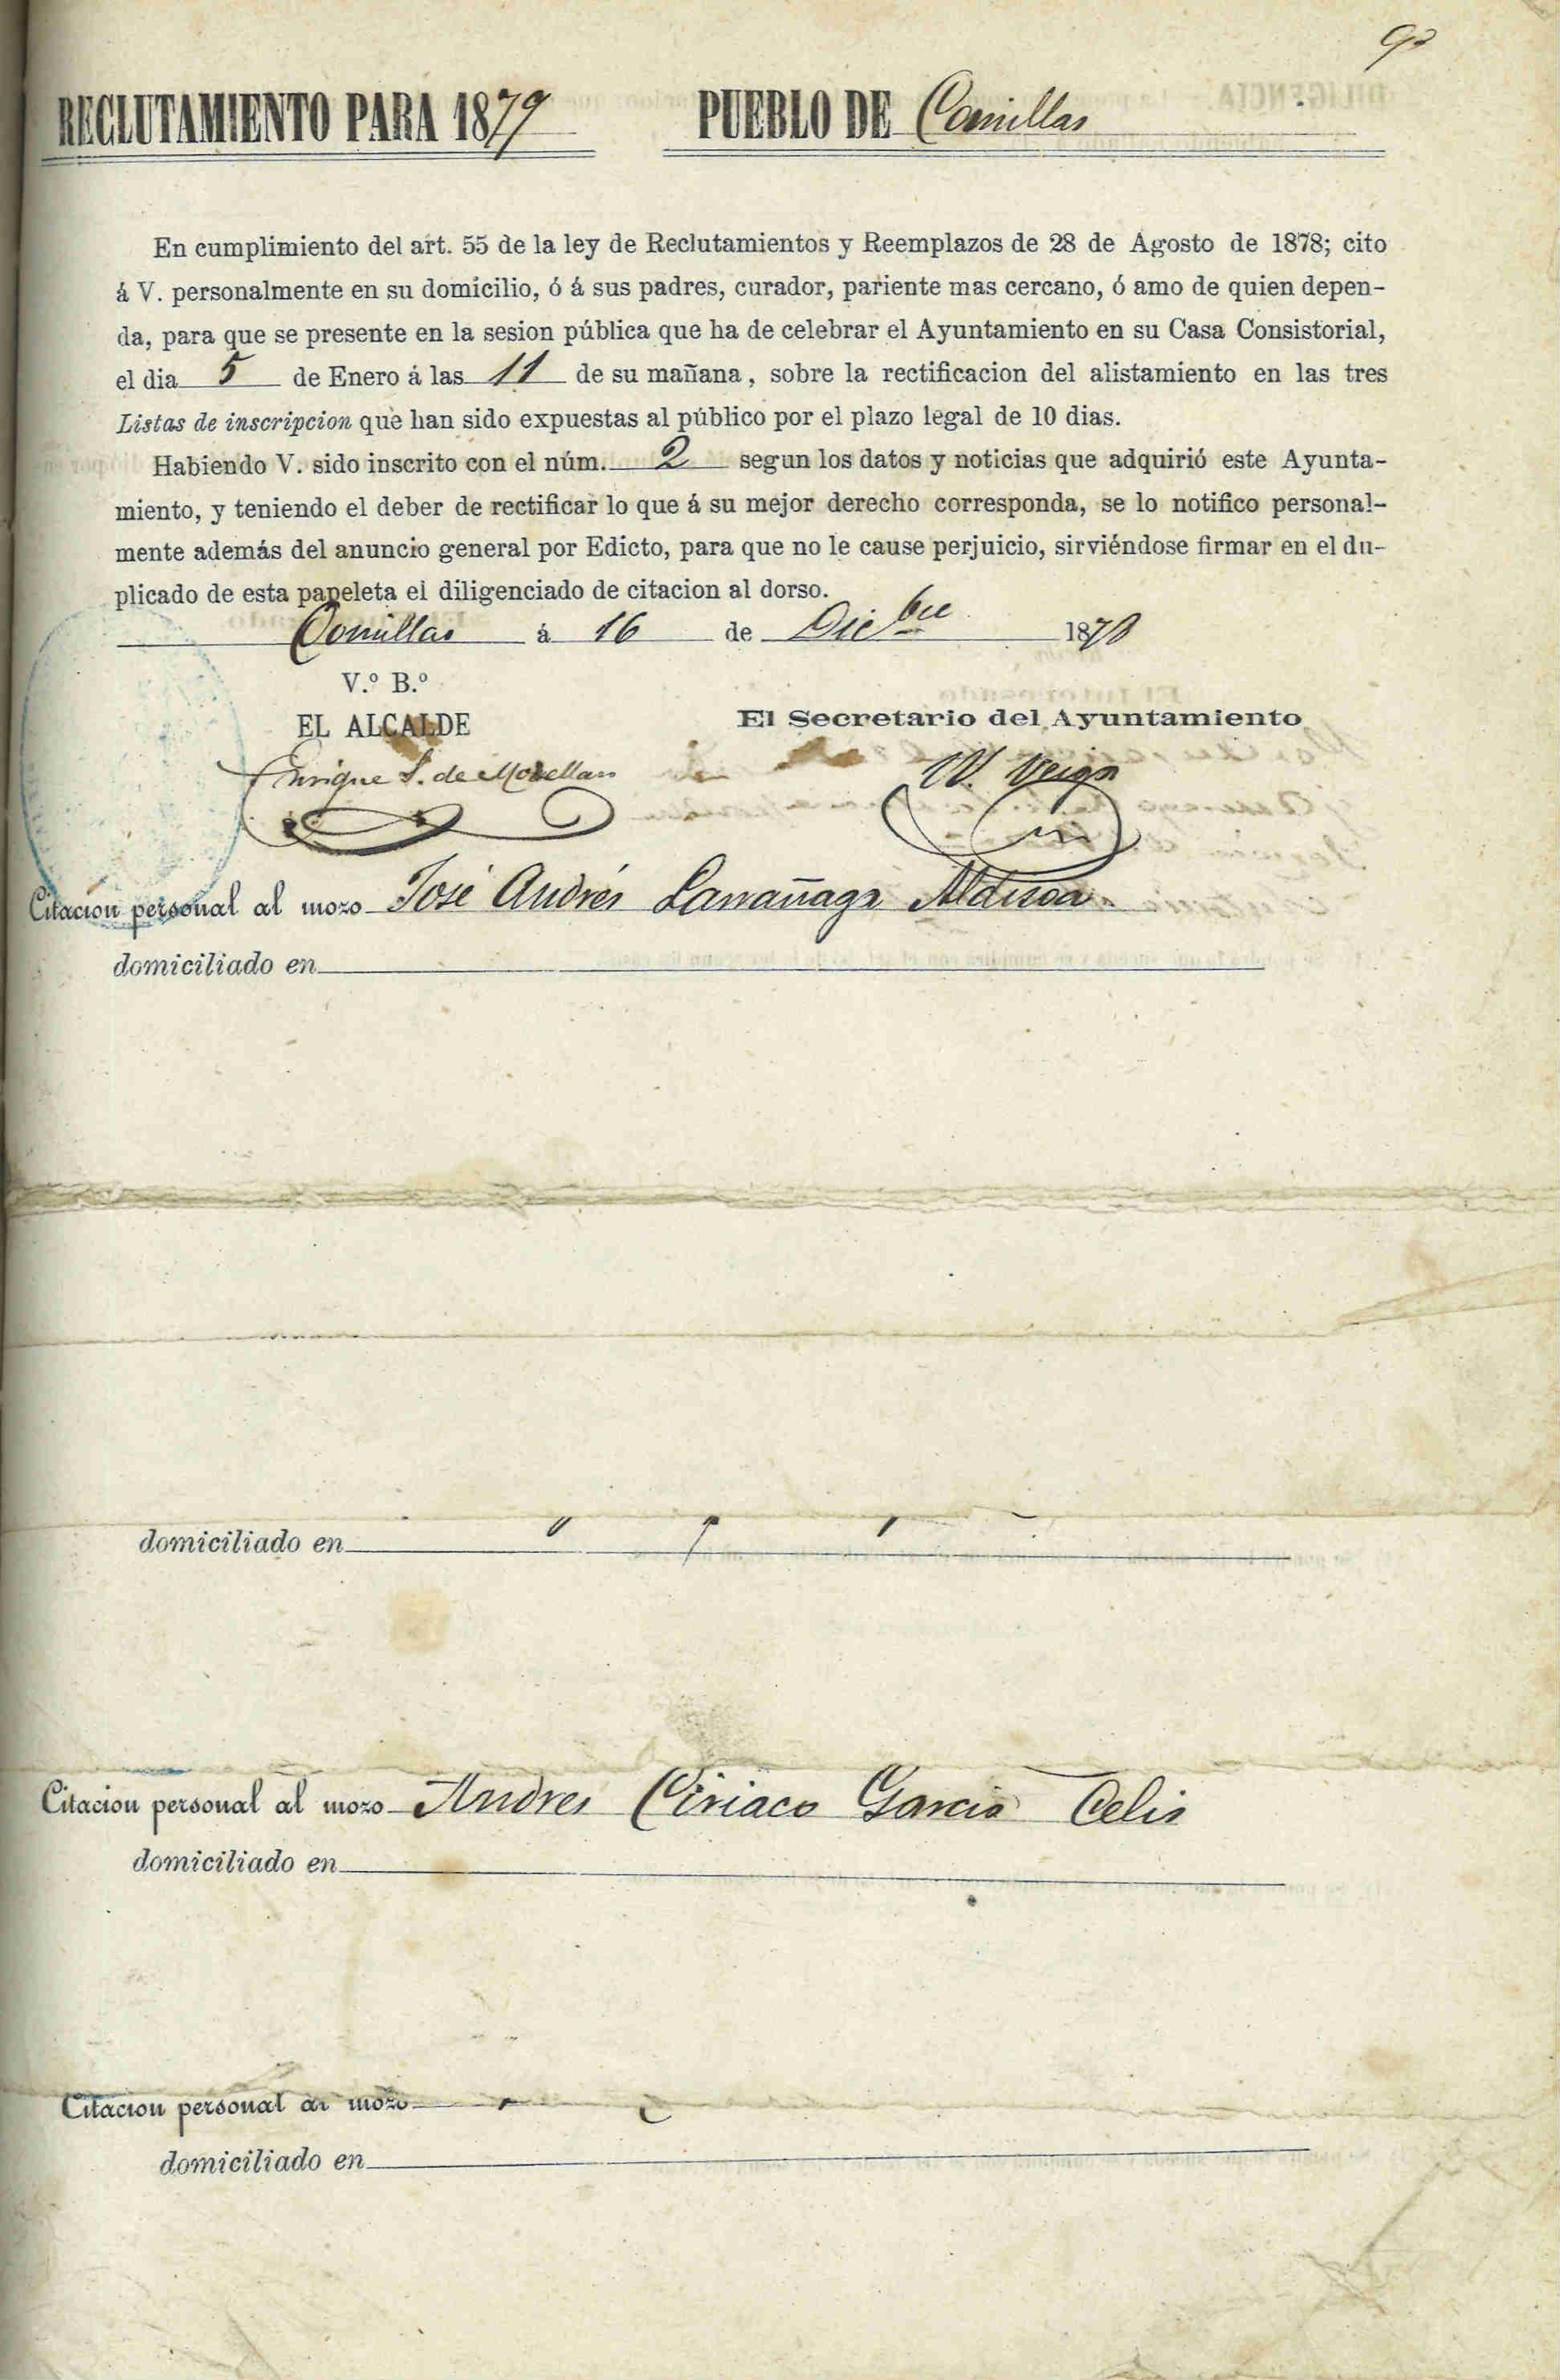 RECLUTAMIENTO PARA 1879 PUEBLO DE Comillas
En cumplimiento del art. 55 de la ley de Reclutamientos y Reemplazos de 28 de Agosto de 1878; cito
á V. personalmente en su domicilio, ó á sus padres, curador, pariente mas cercano, ó amo de quien depen-
da, para que se presente en la sesion pública que ha de celebrar el Ayuntamiento en su Casa Consistorial,
el dia 5 de Enero á las 11 de su mañana, sobre la rectificacion del alistamiento en las tres
Listas de inscripcion que han sido expuestas al público por el plazo legal de 10 dias.
Habiendo V. sido inscrito con el núm. 2 segun los datos y noticias que adquirió este Ayunta-
miento, y teniendo el deber de rectificar lo que á su mejor derecho corresponda, se lo notifico personal-
mente además del anuncio general por Edicto, para que no le cause perjuicio, sirviéndose firmar en el du-
plicado de esta papeleta el diligenciado de citacion al dorso.
Comillas á 16 de Dicbre 1878
V.º B.º
EL ALCALDE El Secretario del Ayuntamiento
Enrique S. de Movellan W. Veiga
Citacion personal al mozo José Andrés Larrañaga
domiciliado en
domiciliado en
Citacion personal al mozo Andres Ciriaco Garcia Celis
domiciliado en
Citacion personal al mozo
domiciliado en